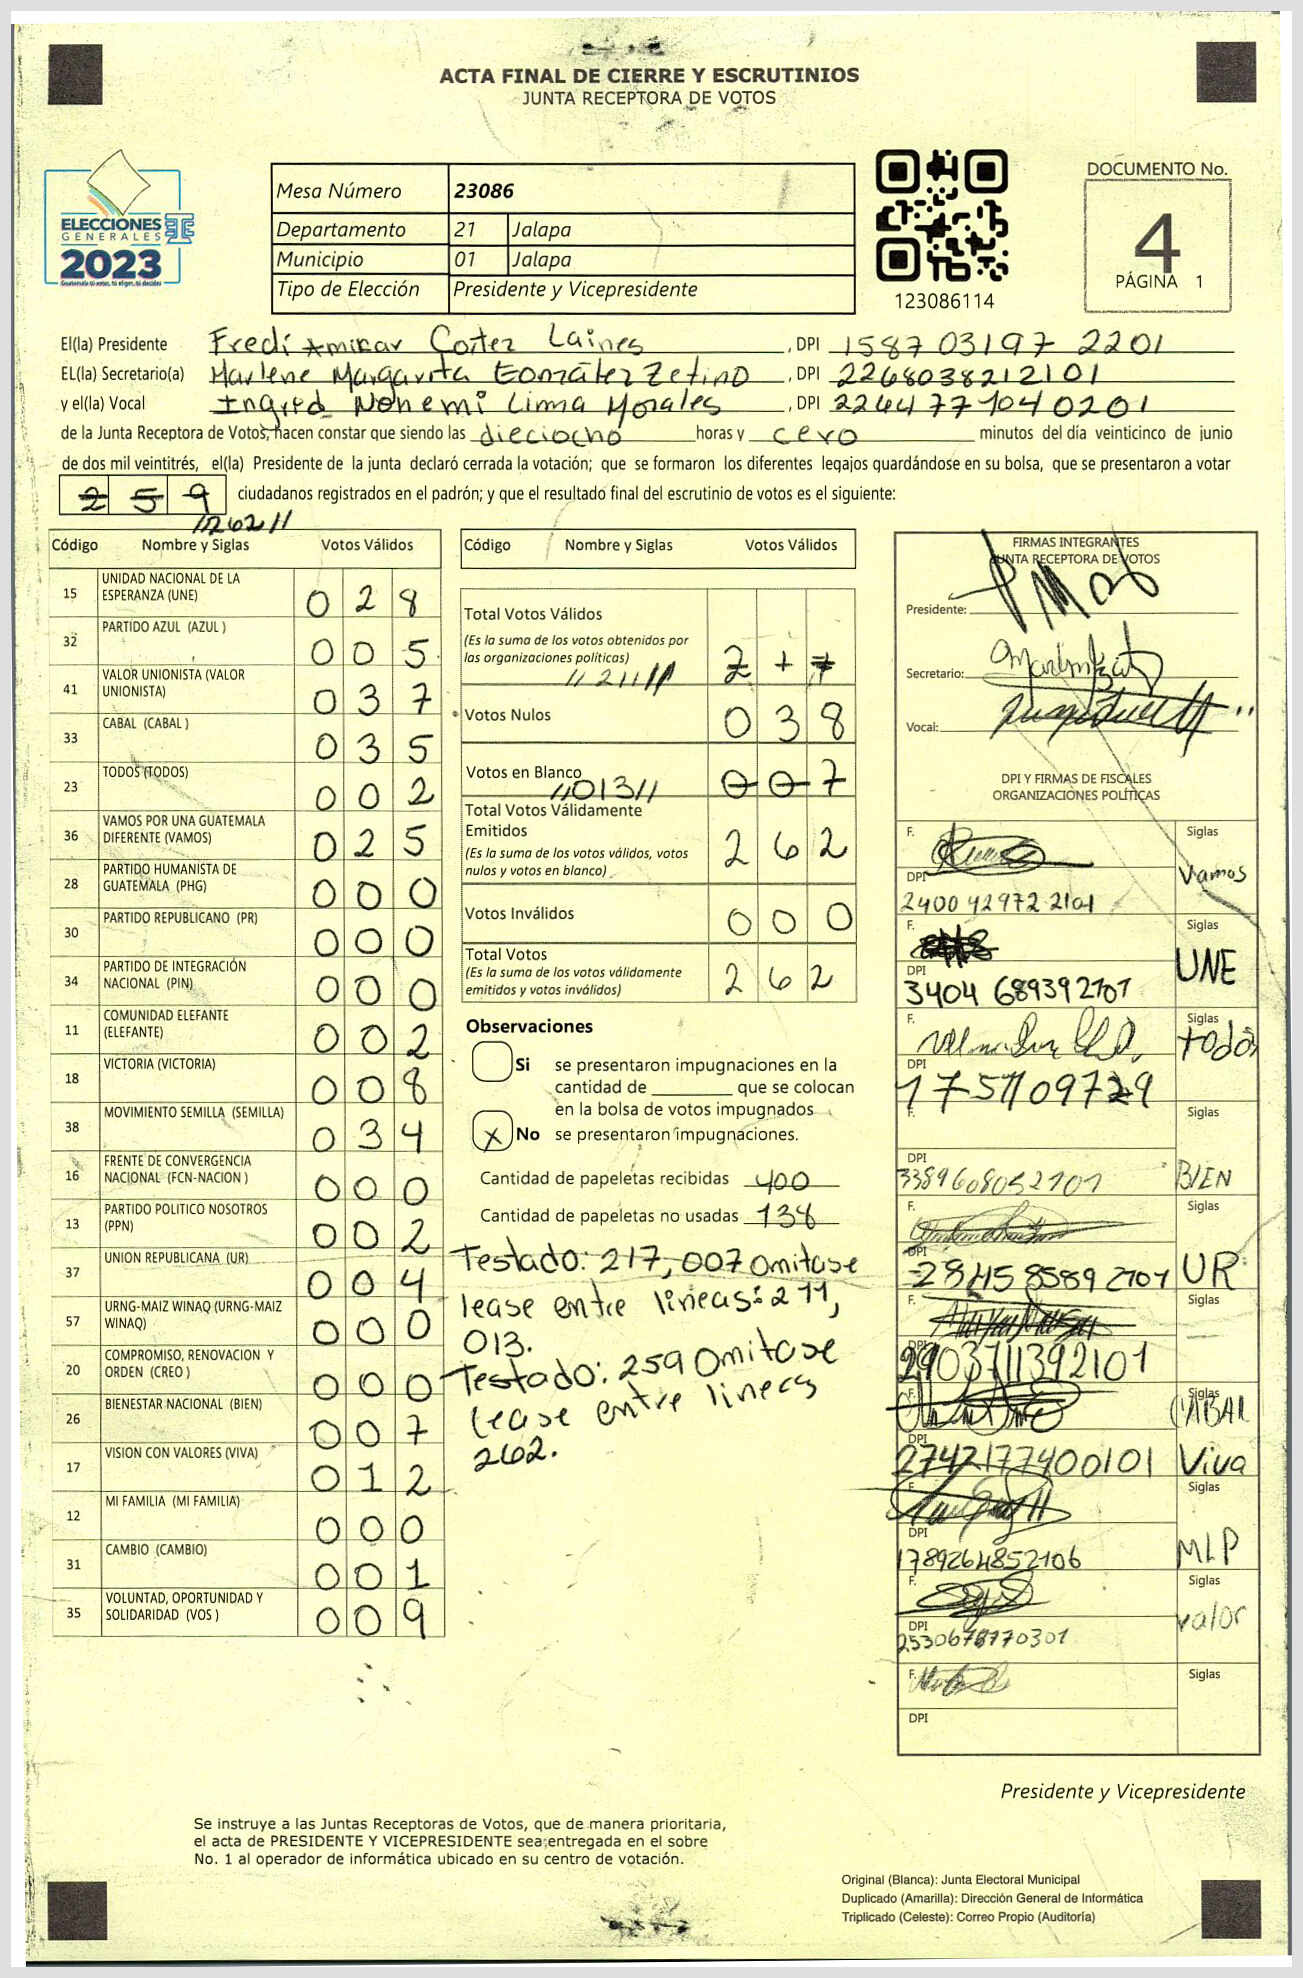 ACTA FINAL DE CIERRE Y ESCRUTINIOS
JUNTA RECEPTORA DE VOTOS
ELECCIONES
GENERALES
2023
Mesa Número 23086
Departamento 21 Jalapa
Municipio 01 Jalapa
Tipo de Elección Presidente y Vicepresidente
123086114
DOCUMENTO No.
4
PÁGINA 1
El(la) Presidente Fredi Amikar Cortez Laines , DPI 1587 03197 2201
EL(la) Secretario(a) Marlene Margarita González Zetino , DPI 2268038212101
y el(la) Vocal Ingred Nohemi Lima Morales , DPI 2264771040201
de la Junta Receptora de Votos, hacen constar que siendo las dieciocho horas y cero minutos del día veinticinco de junio
de dos mil veintitrés, el(la) Presidente de la junta declaró cerrada la votación; que se formaron los diferentes legajos guardándose en su bolsa, que se presentaron a votar
259 ciudadanos registrados en el padrón; y que el resultado final del escrutinio de votos es el siguiente:
//262//
Código Nombre y Siglas Votos Válidos
15 UNIDAD NACIONAL DE LA ESPERANZA (UNE) 028
32 PARTIDO AZUL (AZUL ) 005
41 VALOR UNIONISTA (VALOR UNIONISTA) 037
33 CABAL (CABAL ) 035
23 TODOS (TODOS) 002
36 VAMOS POR UNA GUATEMALA DIFERENTE (VAMOS) 025
28 PARTIDO HUMANISTA DE GUATEMALA (PHG) 000
30 PARTIDO REPUBLICANO (PR) 000
34 PARTIDO DE INTEGRACIÓN NACIONAL (PIN) 000
11 COMUNIDAD ELEFANTE (ELEFANTE) 002
18 VICTORIA (VICTORIA) 008
38 MOVIMIENTO SEMILLA (SEMILLA) 034
16 FRENTE DE CONVERGENCIA NACIONAL (FCN-NACION ) 000
13 PARTIDO POLITICO NOSOTROS (PPN) 002
37 UNION REPUBLICANA (UR) 004
57 URNG-MAIZ WINAQ (URNG-MAIZ WINAQ) 000
20 COMPROMISO, RENOVACION Y ORDEN (CREO ) 000
26 BIENESTAR NACIONAL (BIEN) 007
17 VISION CON VALORES (VIVA) 012
12 MI FAMILIA (MI FAMILIA) 000
31 CAMBIO (CAMBIO) 001
35 VOLUNTAD, OPORTUNIDAD Y SOLIDARIDAD (VOS ) 009
Código Nombre y Siglas Votos Válidos
Total Votos Válidos 217
(Es la suma de los votos obtenidos por
las organizaciones politicas)
//211//
Votos Nulos 038
Votos en Blanco 007
//013//
Total Votos Válidamente
Emitidos 262
(Es la suma de los votos válidos, votos
nulos y votos en blanco)
Votos Inválidos 000
Total Votos 262
(Es la suma de los votos válidamente
emitidos y votos inválidos)
Observaciones
Si se presentaron impugnaciones en la
cantidad de ________ que se colocan
en la bolsa de votos impugnados
X No se presentaron impugnaciones.
Cantidad de papeletas recibidas 400
Cantidad de papeletas no usadas 138
Testado: 217, 007 Omitase
lease entre lineas: 211,
013.
Testado: 259 Omitase
lease entre lineas
262.
FIRMAS INTEGRANTES
JUNTA RECEPTORA DE VOTOS
Presidente:
Secretario:
Vocal:
DPI Y FIRMAS DE FISCALES
ORGANIZACIONES POLÍTICAS
F. Siglas
Vamos
DPI
2400 42972 2101
F. Siglas
UNE
DPI
3404 689392101
F. Siglas
todos
DPI
1751109729
F. Siglas
DPI
3389608052101 BIEN
F. Siglas
DPI
28458589 2101 UR
F. Siglas
DPI
2903711392101
F. Siglas
CABAL
DPI
2742177400101 Viva
F. Siglas
DPI
1789264852106 MLP
F. Siglas
valor
DPI
2530678770301
F. Siglas
DPI
Presidente y Vicepresidente
Se instruye a las Juntas Receptoras de Votos, que de manera prioritaria,
el acta de PRESIDENTE Y VICEPRESIDENTE sea entregada en el sobre
No. 1 al operador de informática ubicado en su centro de votación.
Original (Blanca): Junta Electoral Municipal
Duplicado (Amarilla): Dirección General de Informática
Triplicado (Celeste): Correo Propio (Auditoría)